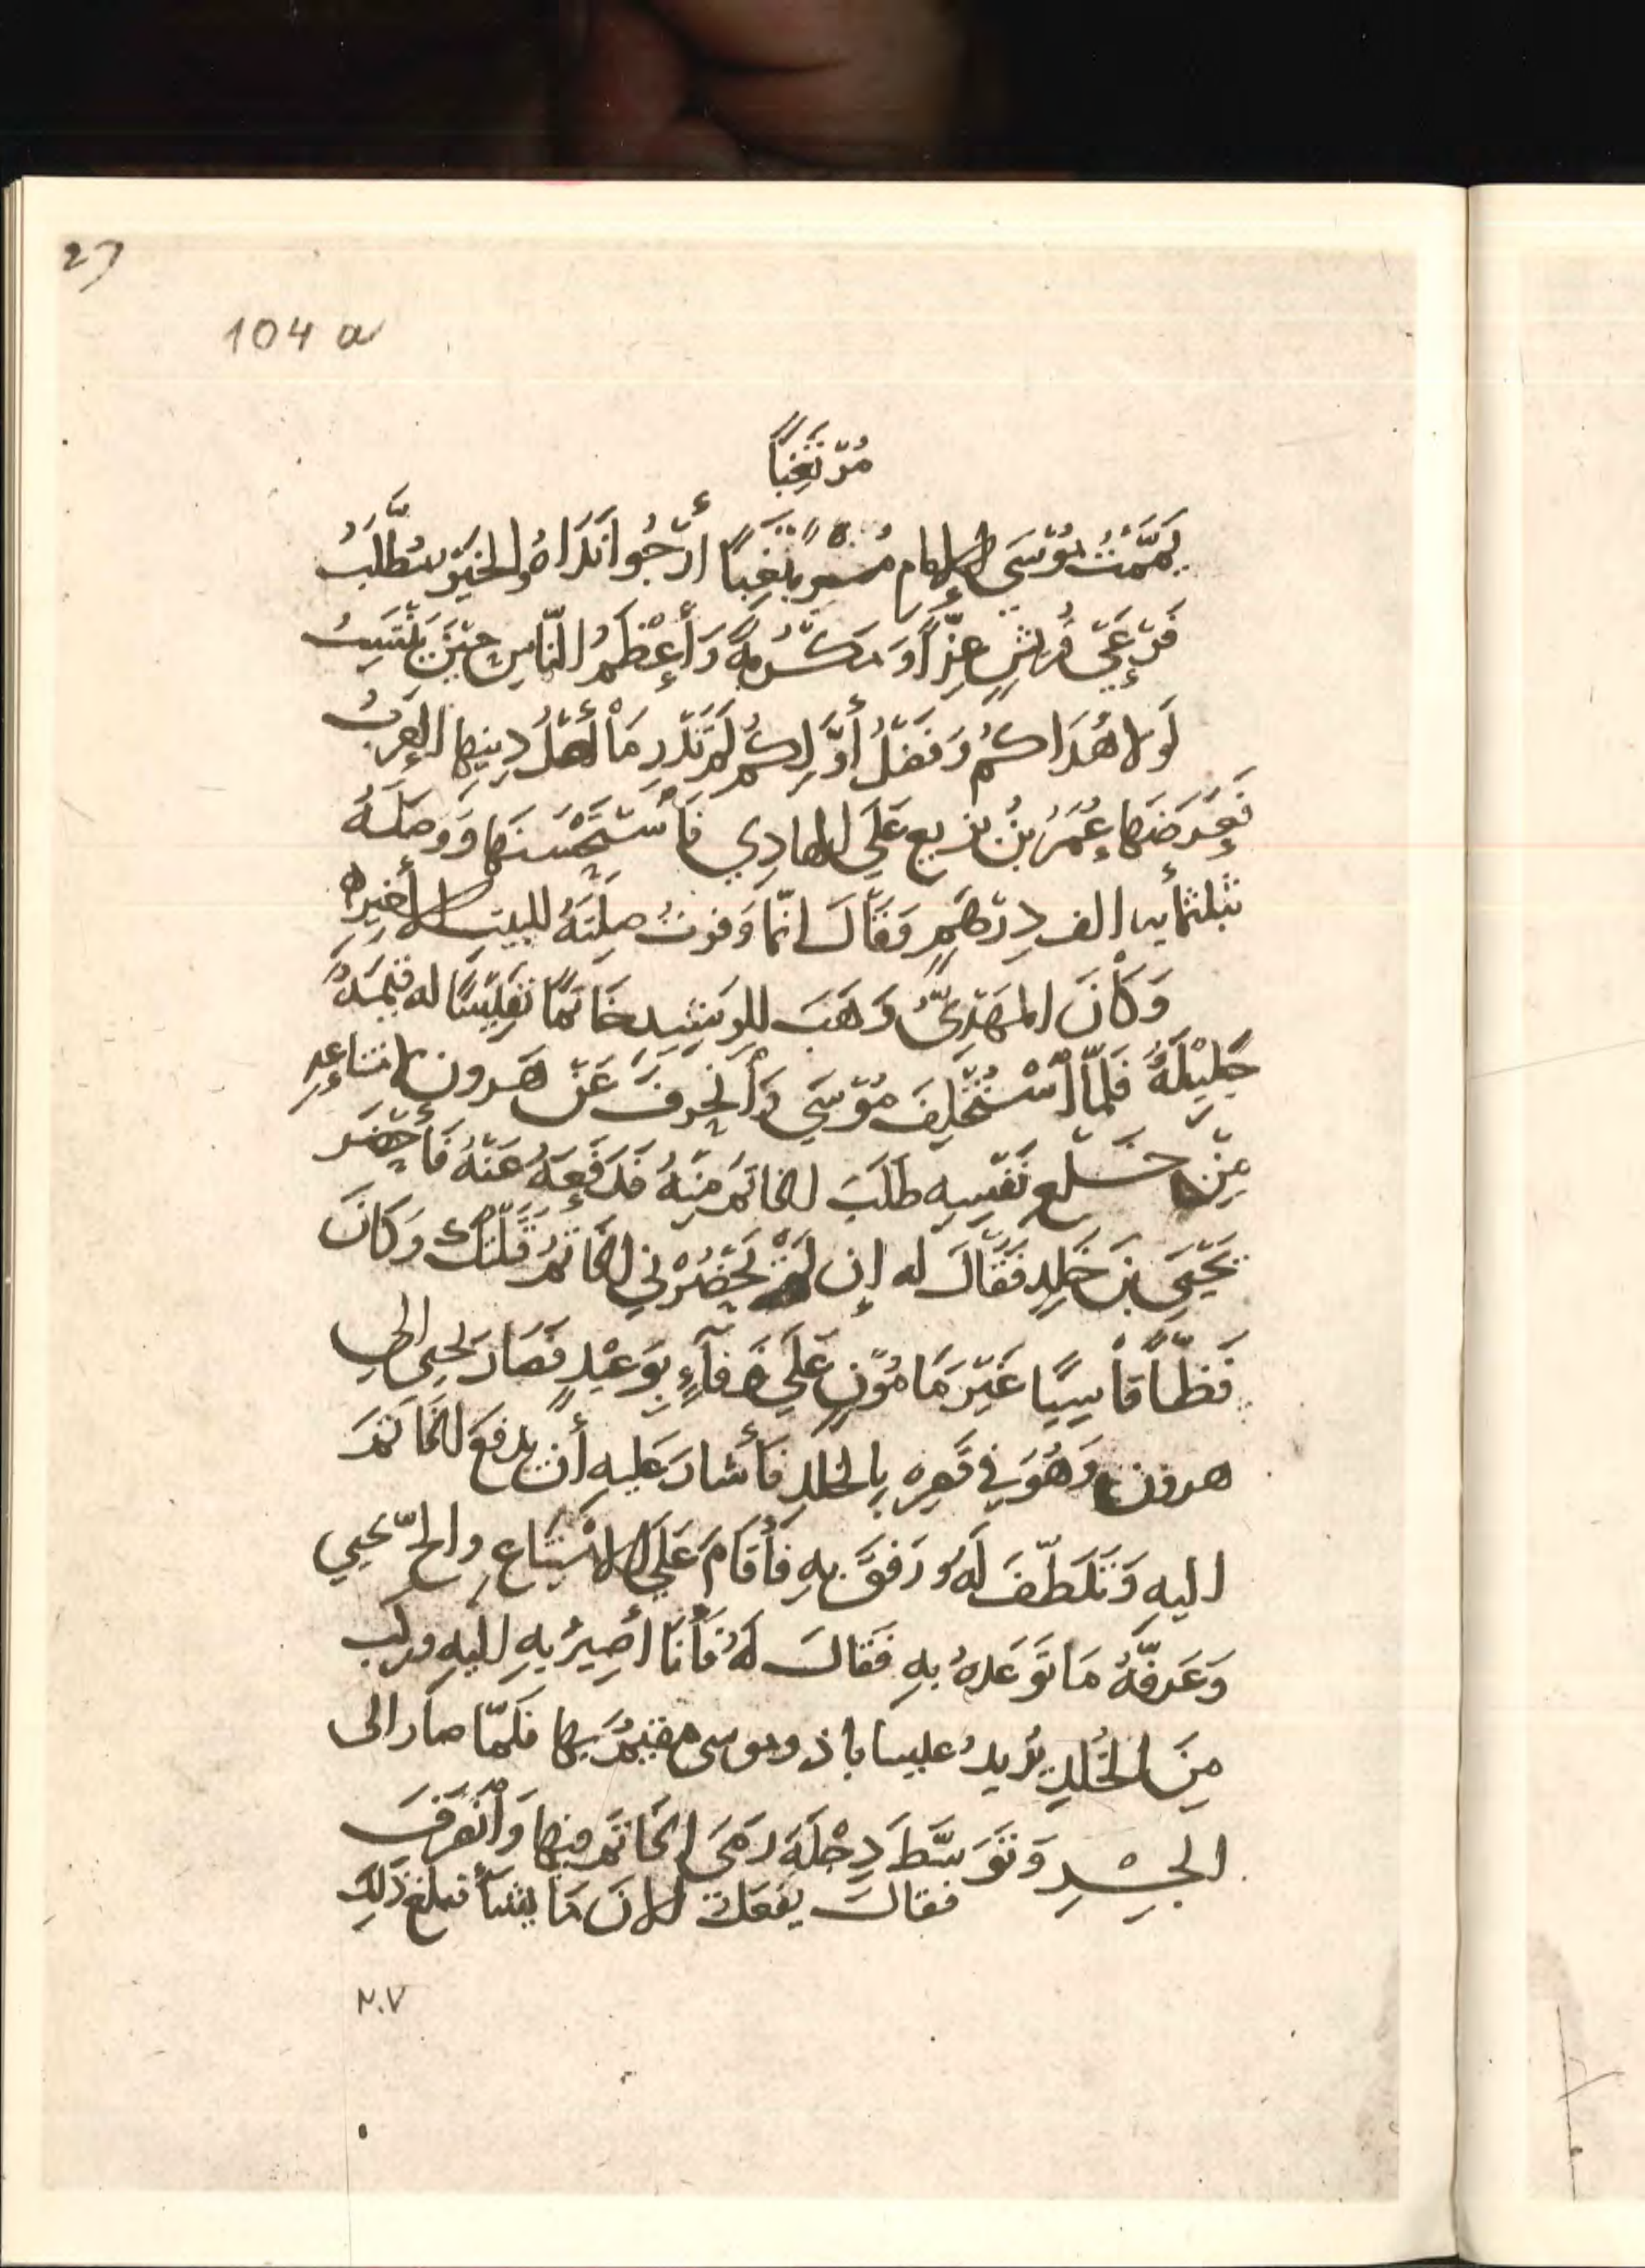 27
104 a
مُرْتَغِبًا
يَمَّمْتُ مُوْسَى الإمام مُرْتَغِبًا أَرْجُوا نَدَاهُ والخَيْرُ يُطَّلَبُ
فَرْعَيْ قُريشٍ عِزًّا وَمَكْرُمةً وَأَعْظَمُ النّاسِ حِيْنَ يَنْتَسِبُ
لَولا هُدَاكُم وَفَضْلُ أَوَّلِكُمْ لَمْ تَدْرِ مَا أَهْلُ دِينِها العَرَبُ
فَعَرَضَها عُمَرُ بنُ بَزِيع عَلَي الهادِي فَاسْتَحْسَنَها وَوَصَلَهُ
بثلثمأيه الف دِرْهَمٍ وَقَالَ انّما وَفرتُ صِلَتَهُ للبيتِ الأخيره
وَكَانَ المَهْدِيُّ وَهَبَ للرَشِيدِ خَاتمًا نَفِيْسًا له قيْمَةٌ
جَلِيْلَةٌ فَلمَّا اسْتُخْلِفَ مُوْسَي وَأنحرفَ عَنْ هَرون لامتناعِهِ
مِنْ خَلعِ نَفْسِهِ طَلَبَ الخاتمَ مِنْهُ فَدَفَعَهُ عَنْهُ فَأحْضَرَ
يَحْيَي بنَ خَلدٍ فَقَالَ له إن لَمْ تُحْضُرْني الخاتمُ قَتَلْتُكَ وَكَانَ
فَظًّا قَاسِيًا غَيْرَ مَامُوْنٍ عَلَي وَفَآءٍ بِوَعْيْدٍ فَصَارَ يَحيي الي
هرون وَهُوَ في قَصره بِالخلدِ فَأشارَ عَليهِ أن يدفعَ الخاتمَ
اليهِ وَتَلَطّفَ لَهُ وَرَفقَ بهِ فَأقَامَ عَلَي الامْتِنَاعِ والحّ يحيي
وَعَرفّهُ مَا تَوَعدهُ بهِ فَقَالَ لهُ فَأنا أصِيرُ بهِ اليهِ وركب
مِنَ الخُلدِ يُريدُ عيساباذ وموسى مقيمٌ بها فَلمّا صَار الى
الجِسْرِ وَتَوَسَّطَ دِجْلَةَ رَمَى الخاتمَ فيها وَانْصَرَفَ
فقالَ يَفعَلُ الانَ مَا يشَأ فبلغ ذَلِكَ
٢٠٧